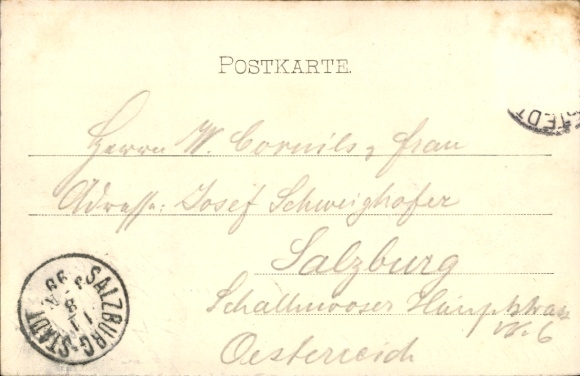 POSTKARTE.
IEDT
Herrn W. Cornils, frau
Adresse: Josef Schweighofer
Salzburg
Schallmooser Hauptstrass
No. 6
Oesterreich
SALZBURG-STADT
11 8 99